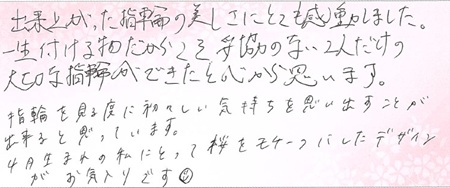 出来上がった指輪の美しさにとても感動しました。
一生付ける物だからこそ妥協のない2人だけの
大切な指輪ができたと心から思います。
指輪を見る度に初々しい気持ちを思い出すことが
出来ると思っています。
4月生まれの私にとって桜をモチーフにしたデザイン
がお気入りです